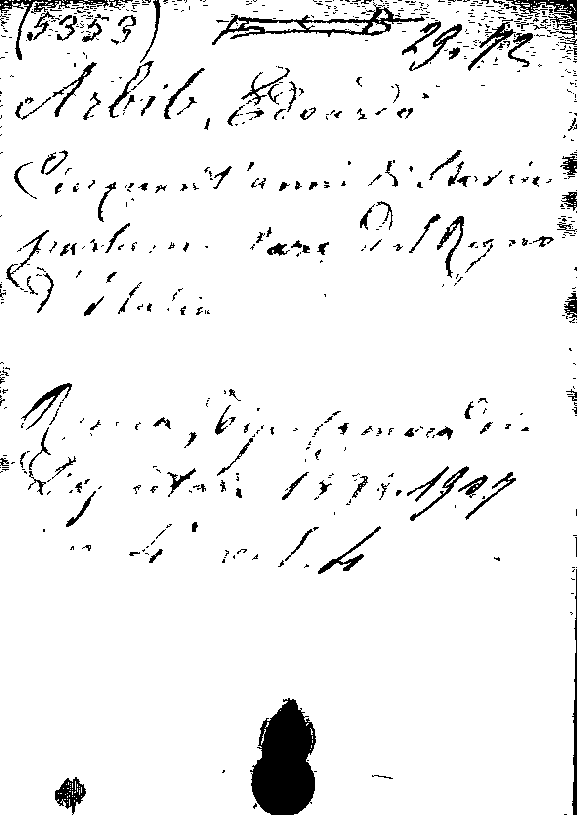 (5353) B C. B 29. 72
Arbib, Edoardo
Cinquant'anni di Storia
parlamentare del Regno
d'Italia
Roma, Tip. Camera dei
Deputati 1898-1907
in 4° vol. 4